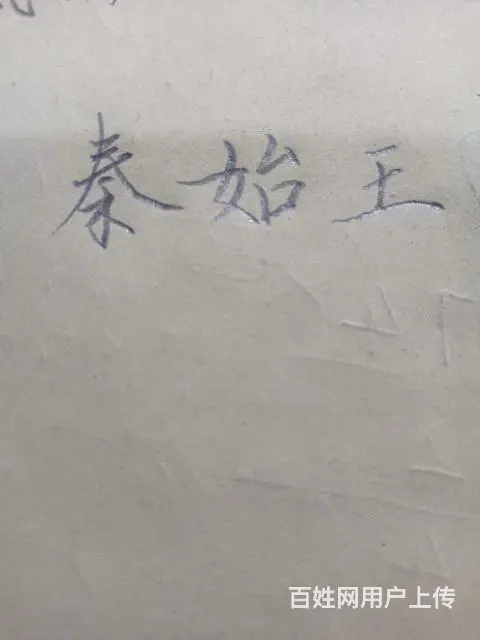 秦始王
百姓网用户上传